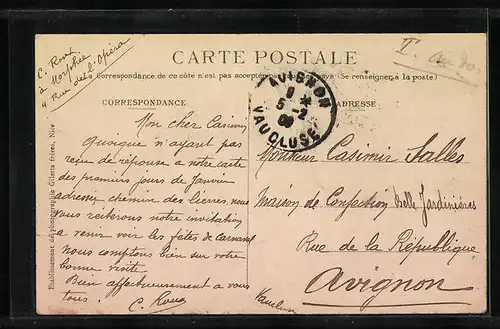 C. Roux
à Morphée
4 rue de l'Opéra
CARTE POSTALE
Correspondance de ce côté n'est pas acceptée par tous les pays (Se renseigner à la poste)
CORRESPONDANCE
ADRESSE
AVIGNON
5-2
VAUCLUSE
Mon cher Casimir
Quoique n'ayant pas
reçu de réponse a notre carte
des premiers jours de Janvier
adressée chemin des lierres, nous
vous reiterons notre invitation
a venir voir les fêtes de Carnaval
nous comptons bien sur votre
bonne visite
Bien affectueusement a vous
tous.
C. Roux
Monsieur Casimir Salles
Maison de Confection Belle Jardinière
Rue de la République
Avignon
Vaucluse
Etablissement de photographie Giletta frères, Nice